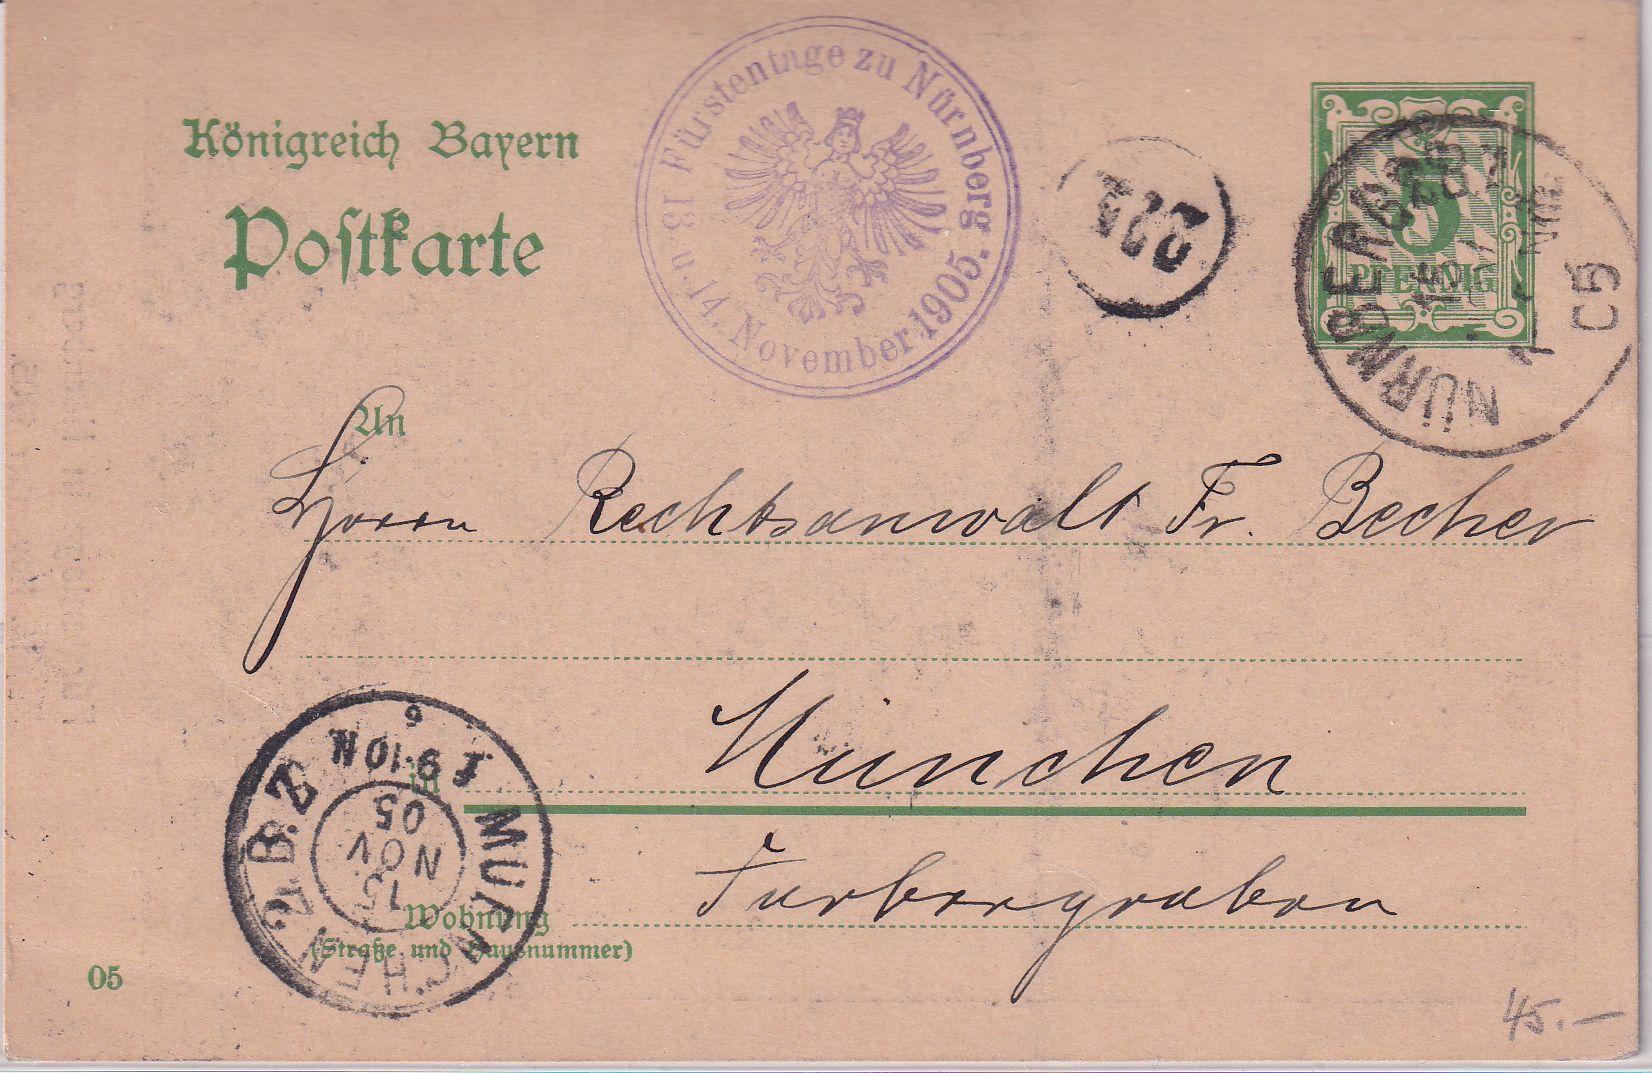 Königreich Bayern
Postkarte
Fürstentage zu Nürnberg
13. u. 14. November 1905.
5
PFENNIG
NÜRNBERG
15
C5
An
Herrn Rechtsanwalt Fr. Becher
in München
Wohnung Farbergraben
(Straße und Hausnummer)
MÜNCHEN 2. B.Z.
F 9-10 N
15
NOV
05
6
05
45.-